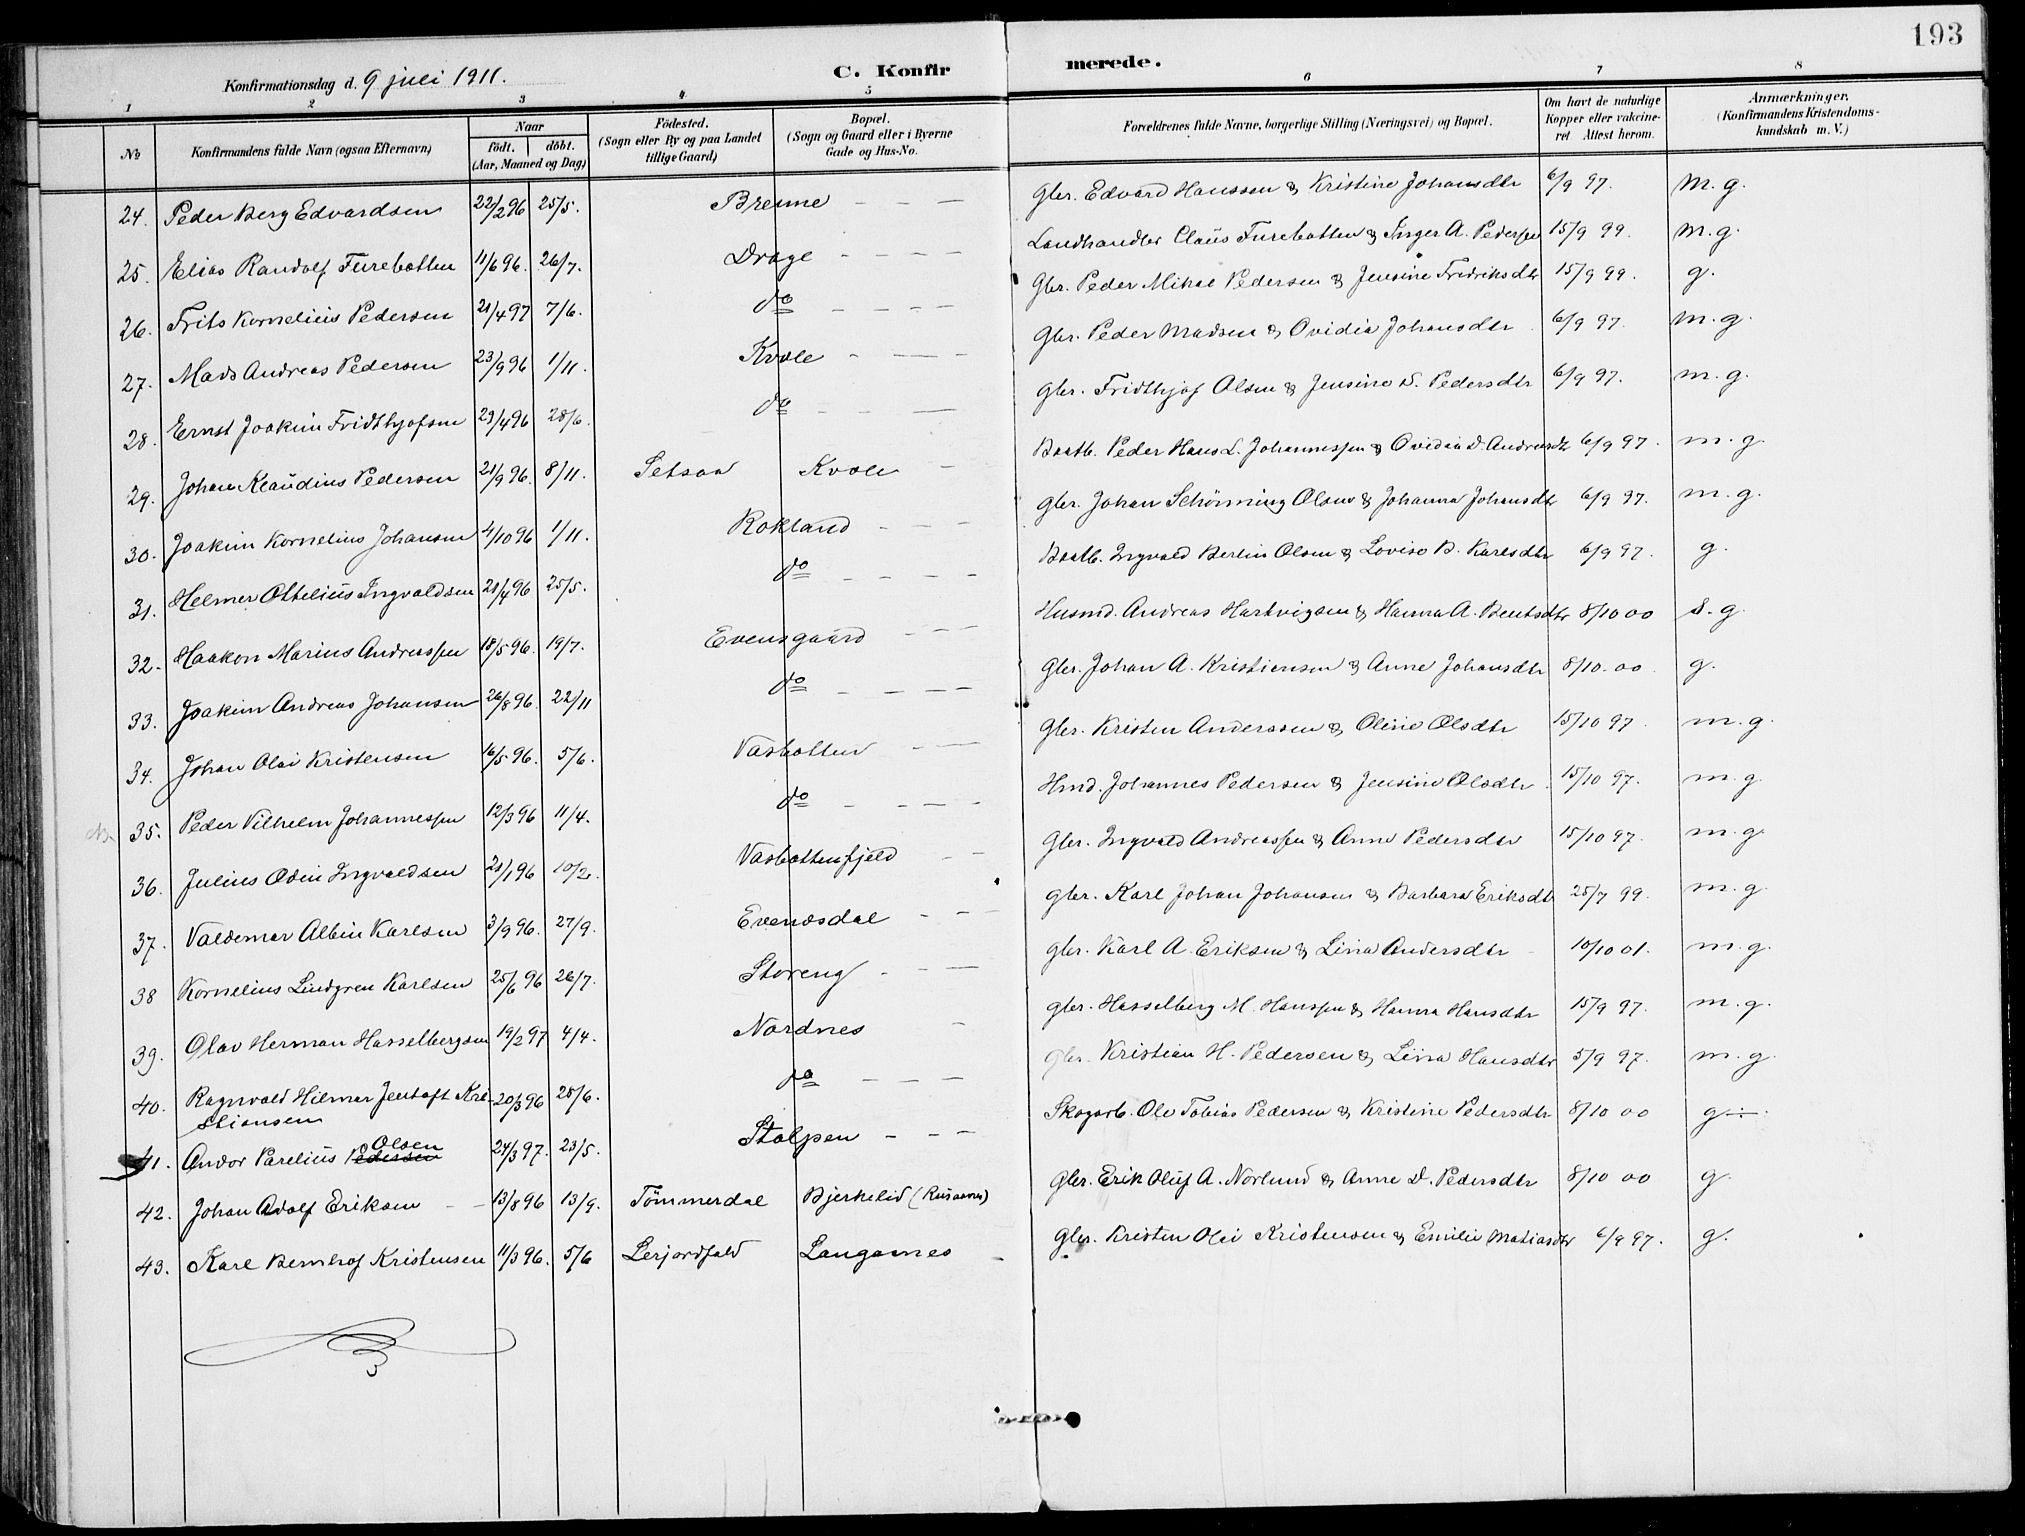 193
Konfirmationsdag d. 9 juli 1911.
C. Konfirmerede.
1 2 3 4 5 6 7 8
No
Konfirmandens fulde Navn (ogsaa Efternavn)
Naar
født. døbt.
(Aar, Maaned og Dag)
Fødested.
(Sogn eller By og paa Landet
tillige Gaard)
Bopæl.
(Sogn og Gaard eller i Byerne
Gade og Hus-No.
Forældrenes fulde Navne, borgerlige Stilling (Næringsvei) og Bopæl.
Om havt de naturlige
Kopper eller vakcine-
ret Attest herom.
Anmærkninger.
(Konfirmandens Kristendoms-
kundskab m. V.)
24. Peder Berg Edvardsen 22/2 96 25/5. Breime Gbr. Edvard Hanssen & Kristine Johansdtr 6/9 97. M. g.
25. Elias Randolf Furebotten 11/6 96. 26/7. Drage Landhandler Claus Furebotten & Inger A. Pedersen 15/9 99. m. g.
26. Frits Kornelius Pedersen 21/4 97 7/6. do Gbr. Peder Mikal Pedersen & Jensine Fredriksdtr 15/9 99. g.
27. Mads Andreas Pedersen 23/9 96 1/11. Kvæle Gbr. Peder Madsen & Ovidia Johansdtr 6/9 97. m. g.
28. Ernst Joakim Fridthjofsen 29/4 96 28/6. do Gbr. Fridthjof Olsen & Jensine D. Pedersdtr 6/9 97. m. g.
29. Johan Klaudius Pedersen 21/9 96. 8/11. Setsaa Kvæle Baatb. Peder Hans L. Johannessen & Ovidia D. Andreasdtr 6/9 97. m. g.
30. Joakim Kornelius Johansen 4/10 96 1/11. Rokland Gbr. Johan Schönning Olsen & Johanna Johansdtr 6/9 97. m. g.
31. Helmer Othelius Ingvaldsen 21/4 96 25/5. do Baatb. Ingvald Berlin Olsen & Lovise B. Karlsdtr 6/9 97. g.
32. Haakon Marius Andreassen 18/5 96. 19/7. Evensgaard Husmd. Andreas Hartvigsen & Hanna A. Bentsdtr 8/10 00 s. g.
33. Joakim Andreas Johansen 26/8 96. 22/11 do Gbr. Johan A. Kristiansen & Anne Johansdtr 8/10. 00 g.
34. Johan Olai Kristensen 16/5 96. 5/6. Vasbotten Gbr. Kristen Anderssen & Oline Olsdtr 15/10 97. m. g.
35. Peder Vilhelm Johannessen 12/3 96 11/4. do Hmd. Johannes Pedersen & Jensine Olsdtr. 15/10 97. m. g.
36. Julius Odin Ingvaldsen 21/1 96 10/2. Vasbottenfjeld Gbr. Ingvald Andreassen & Anne Pedersdtr 15/10 97. m. g.
37. Valdemar Albin Karlsen 3/9 96. 27/9. Evensdal Gbr. Karl Johan Johansen & Barbara Eriksdtr 25/7 99. m. g.
38 Kornelius Lindgren Karlsen 25/6 96 26/7. Storeng Gbr. Karl A. Eriksen & Lina Andersdtr 10/10 01. m. g.
39. Olav Herman Hasselbergsen 19/2 97 4/4. Nordnes Gbr. Hasselberg M. Hanssen & Hanna Hansdtr 15/9 97. m. g.
40. Ragnvald Hilmar Jentoft Kri- 20/3 96 25/6. do Gbr. Kristian H. Pedersen & Lina Hansdtr 5/9 97. m. g.
stiansen
Olsen
41. Andor Parelius Pedersen 24/3 97. 23/5. Stolpen Skogarb. Ole Tobias Pedersen & Kristine Pedersdtr 8/10 00 g.
42. Johan Adolf Eriksen 13/8 96 13/9. Tömmerdal Bjerkelid (Rusaanes) Gbr. Erik Oluf A. Norlund & Anne D. Pedersdtr 8/10 00 g.
43. Karl Bernhof Kristensen 11/3 96. 5/6 Lerjordfald Langsnes Gbr. Kristen Olai Kristensen & Emilie Matiasdtr 6/9 97. g.